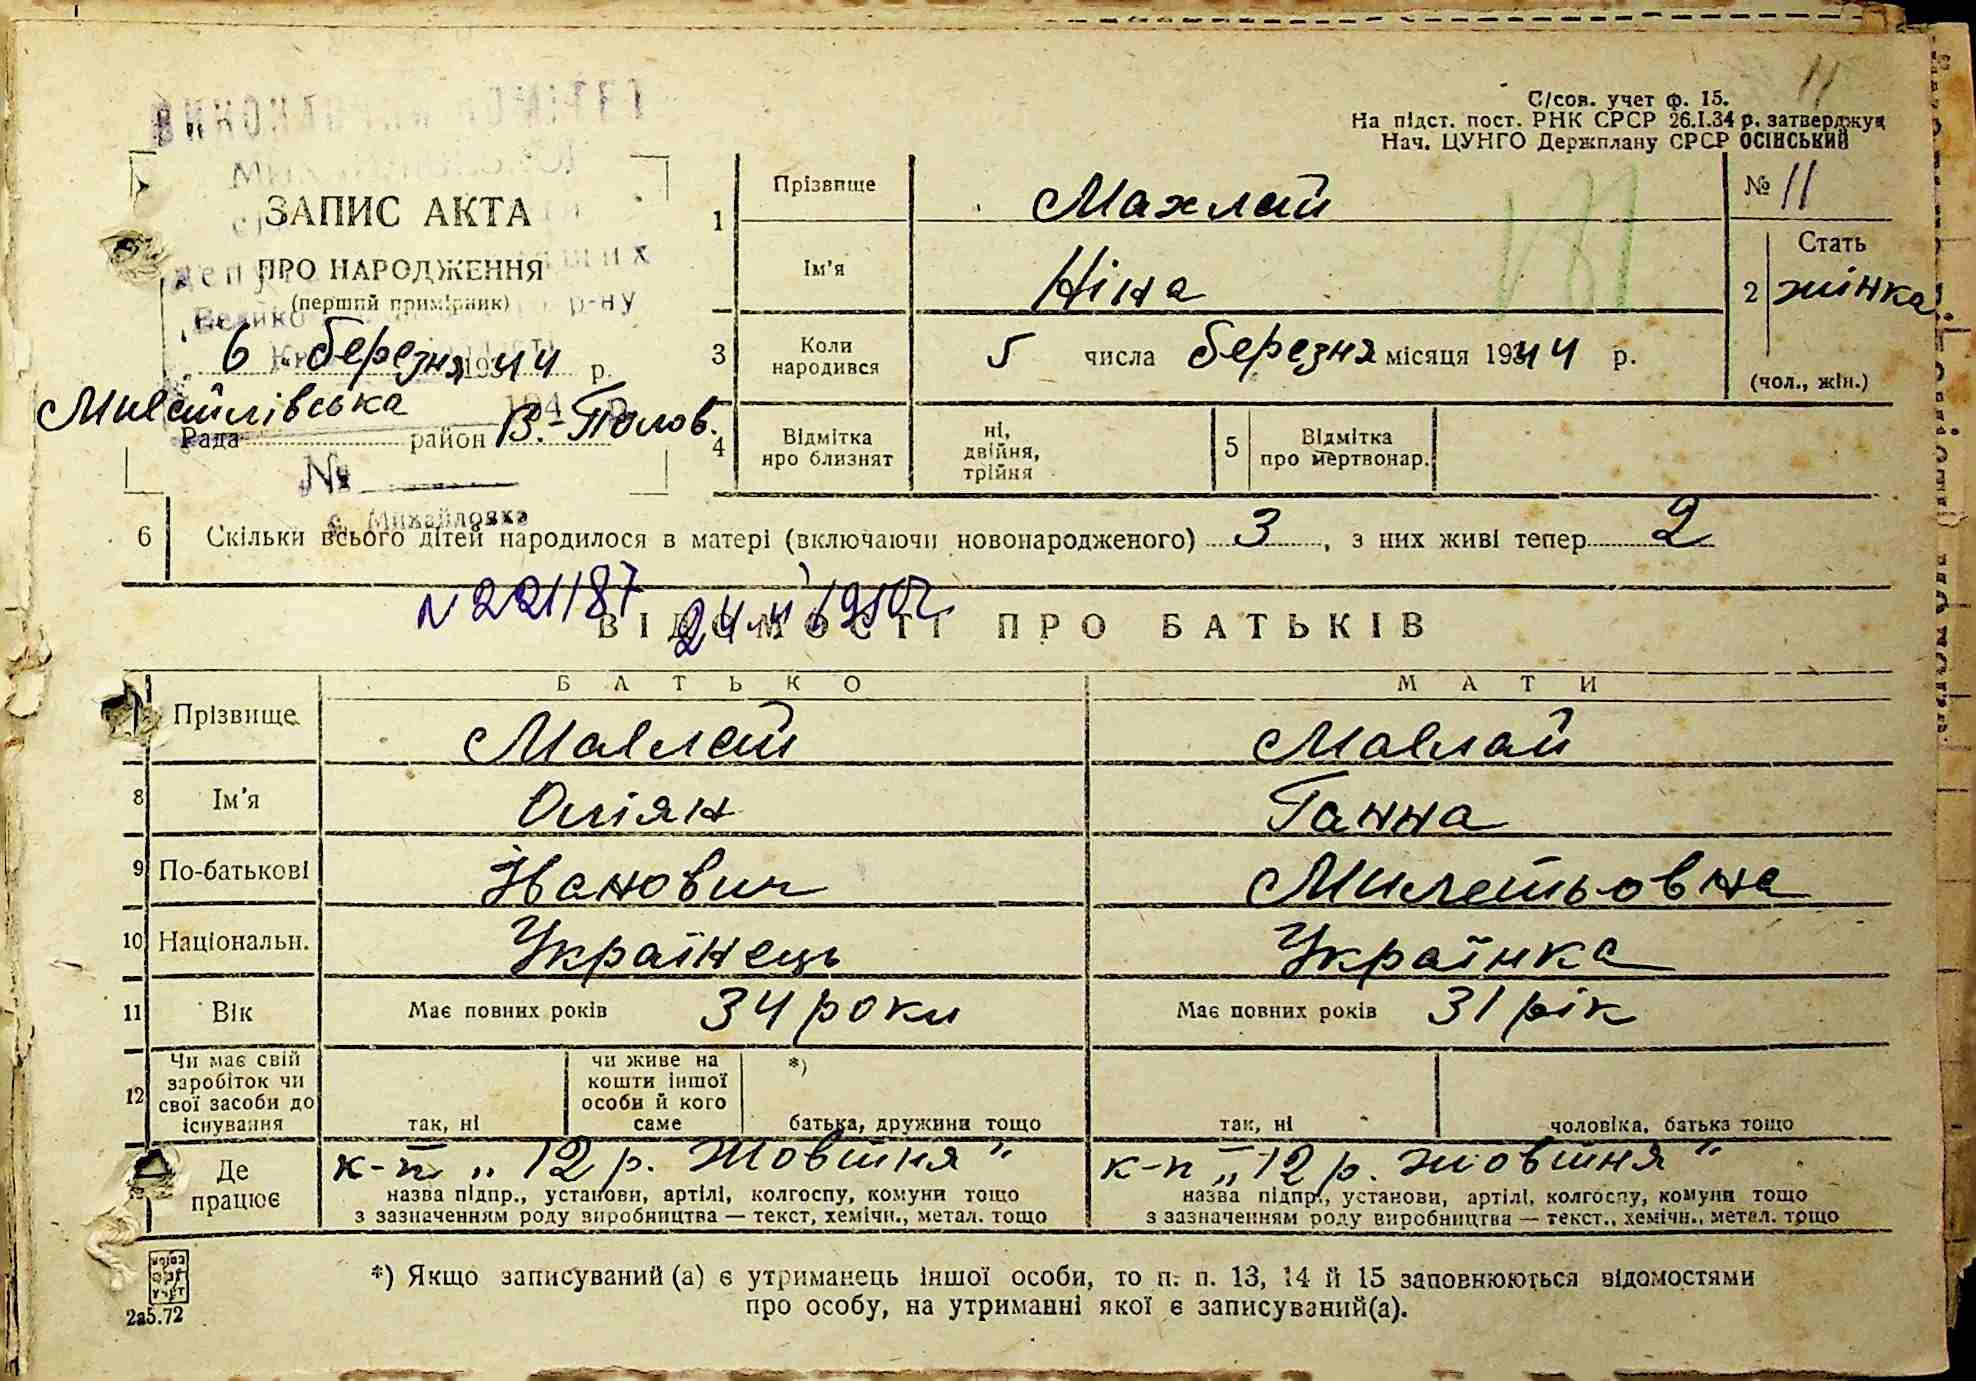 11
С/сов. учет ф. 15.
На підст. пост. РНК СРСР 26.I.34 р. затверджую
Нач. ЦУНГО Держплану СРСР ОСІНСЬКИЙ
ЗАПИС АКТА
ПРО НАРОДЖЕННЯ
(перший примірник)
6 березня 1944 р.
Михайлівська
Рада район В.-Полов.
№
с. Михайловка
1 Прізвище Махлай
№ 11
Ім’я Ніна
181
2 Стать
жінка
(чол., жін.)
3 Коли народився 5 числа березня місяця 1944 р.
4 Відмітка про близнят ні, двійня, трійня
5 Відмітка про мертвонар.
6 Скільки всього дітей народилося в матері (включаючи новонародженого) 3, з них живі тепер 2
N 221187
ВІДОМОСТІ ПРО БАТЬКІВ
БАТЬКО МАТИ
Прізвище Махлай Махлай
8 Ім’я Омілян Ганна
9 По-батькові Іванович Милетьовна
10 Національн. Українець Українка
11 Вік Має повних років 34 роки Має повних років 31 рік
12 Чи має свій заробіток чи свої засоби до існування
так, ні
чи живе на кошти іншої особи й кого саме
*)
батька, дружини тощо
так, ні
чоловіка, батька тощо
Де працює
к-п „12 р. Жовтня“ к-п „12 р. жовтня“
назва підпр., установи, артілі, колгоспу, комуни тощо назва підпр., установи, артілі, колгоспу, комуни тощо
з зазначенням роду виробництва — текст, хемічн., метал. тощо з зазначенням роду виробництва — текст., хемічн., метал. тощо
*) Якщо записуваний (а) є утриманець іншої особи, то п. п. 13, 14 й 15 заповнюються відомостями
про особу, на утриманні якої є записуваний(а).
2а5.72